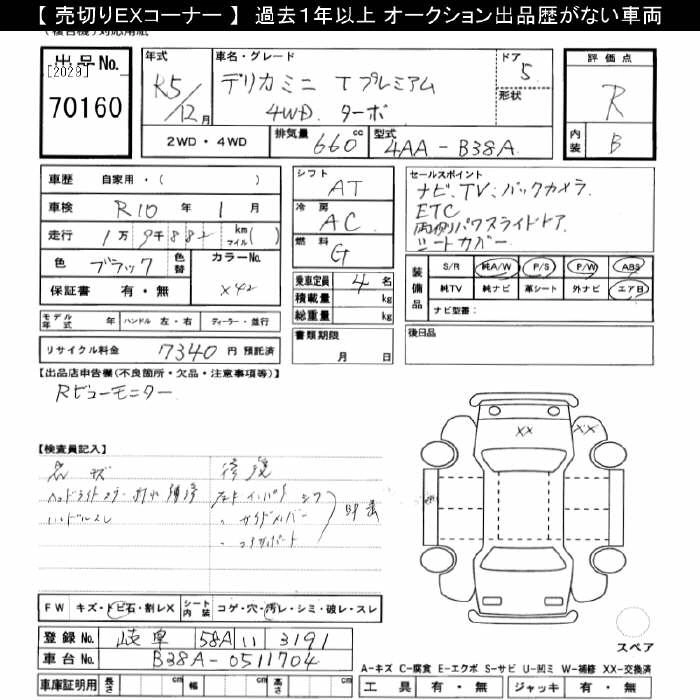 【 売切りEXコーナー 】 過去1年以上 オークション出品歴がない車両
出品No.
[2029]
70160
年式
R5/12月
車名・グレード
デリカミニ Tプレミアム
4WD. ターボ
ドア
5
形状
2WD・4WD
排気量 660 cc
型式 4AA-B38A
評価点
R
内装
B
車歴 自家用・( )
車検 R10 年 1 月
走行 1万9千882 km マイル( )
色 ブラック 色替
カラーNo.
X42
保証書 有・無
モデル年式 年 ハンドル 左・右 ディーラー・並行
リサイクル料金 7340 円 預託済
シフト
AT
冷房
AC
燃料
G
乗車定員 4 名
積載量 kg
総重量 kg
書類期限
月 日
セールスポイント
ナビ、TV、バックカメラ
ETC
両側パワスライドドア
シートカバー
装備品
S/R 純A/W P/S P/W ABS
純TV 純ナビ 革シート 外ナビ エアB
ナビ型番:
後日品
【出品店申告欄(不良箇所・欠品・注意事項等)】
Rビューモニター
【検査員記入】
ハンドルスレ
XX
XX
FW キズ・トビ石・割レX シート内装 コゲ・穴・汚レ・シミ・破レ・スレ
登録No. 岐阜 58A 11 3191
車台No. B38A-0511704
車庫証明用 長さ cm 幅 cm 高さ cm
スペア
A-キズ C-腐食 E-エクボ S-サビ U-凹ミ W-補修 XX-交換済
工具 有・無 ジャッキ 有・無